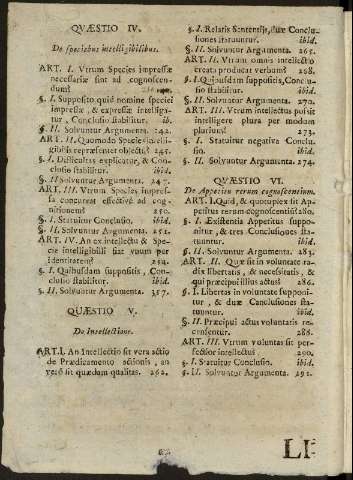 QVÆSTIO IV.
De speciebus intelligibilibus.
ART. I. Vtrum Species impressæ
necessariæ sint ad cognoscen-
dum?
§. I. Supposito quid nomine speciei
impressæ, & expressæ intelliga-
tur, Conclusio stabilitur. ib.
§. II. Solvuntur Argumenta. 242.
ART. II. Quomodo Species intelli-
gibilis repræsentet objectū? 245.
§. I. Difficultas explicatur, & Con-
clusio stabilitur. ibid.
§. II Solvuntur Argumenta. 247.
ART. III. Vtrum Species impres-
sa concurrat effectivè ad cog-
nitionem? 250.
§. I. Statuitur Conclusio. ibid.
§. II. Solvuntur Argumenta. 251.
ART. IV. An ex intellectu & Spe-
cie intelligibili fiat vnum per
identitatem? 254.
§. I. Quibusdam suppositis, Con-
clusio stabilitur. ibid.
§. II. Solvuntur Argumenta. 257.
QVÆSTIO V.
De Intellectione.
ART. I. An Intellectio sit vera actio
de Prædicamento actionis, an
verò sit quædam qualitas. 262.
§. I. Relatis Sententijs, duæ Conclu-
siones statuuntur. ibid.
§. II. Solvuntur Argumenta. 265.
ART. II. Vtrum omnis intellectio
creata producat verbum? 268.
§. I. Quibusdam suppositis, Conclu-
sio stabilitur. ibid.
§. II. Solvuntur Argumenta. 270.
ART. III. Vtrum intellectus possit
intelligere plura per modum
plurium? 273.
§. I. Statuitur negativa Conclu-
sio. ibid.
§. II. Solvuntur Argumenta. 274.
QVÆSTIO VI.
De Appetitu rerum cognoscentium.
ART. I. Quid, & quotuplex sit Ap-
petitus rerum cognoscentiū? 280.
§. I. Existentia Appetitus suppo-
nitur, & tres Conclusiones sta-
tuuntur. ibid.
§. II. Solvuntur Argumenta. 283.
ART. II. Quæ sit in voluntate ra-
dix libertatis, & necessitatis, &
qui præcipui illius actus? 286.
§. I. Libertas in voluntate supponi-
tur, & duæ Conclusiones sta-
tuuntur. ibid.
§. II. Præcipui actus voluntatis re-
censentur. 288.
ART. III. Vtrum voluntas sit per-
fectior intellectus? 290.
§. I. Statuitur Conclusio. ibid.
§. II. Solvuntur Argumenta. 291.